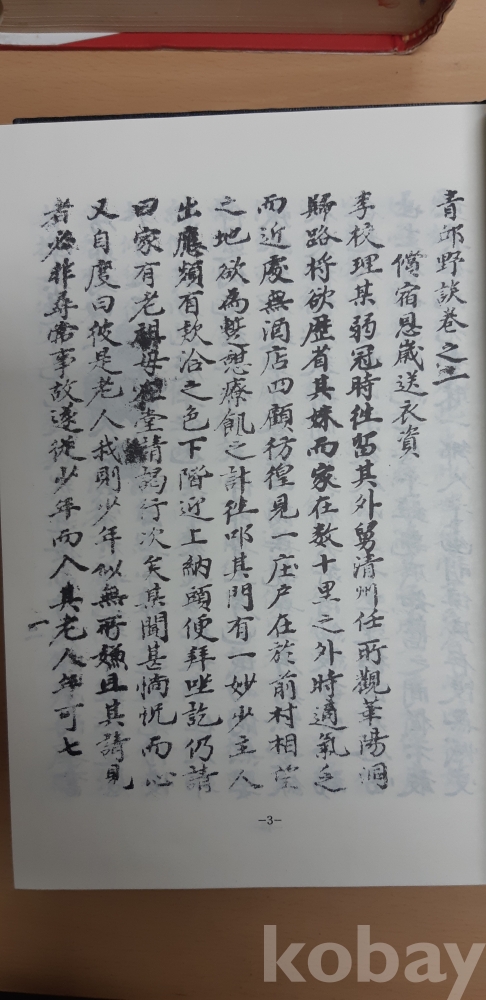 青邱野談卷之二
償宿恩歲送衣資
李校理某弱冠時往留其外舅清州任所觀華陽洞
歸路将欲歷省其妹而家在数十里之外時適氣乏
而近處無酒店四顧彷徨見一庄户在於前村相望
之地欲為暫憇療飢之計徃叩其門有一妙少主人
出應頗有欵洽之色下階近上納頭便拜坐訖仍請
曰家有老祖母在堂請謁行次矣某聞甚惝怳而心
又自度曰彼是老人我則少年似無所嫌且其請見
者必非尋常事故遂從少年而入其老人年可七
一
-3-
kobay